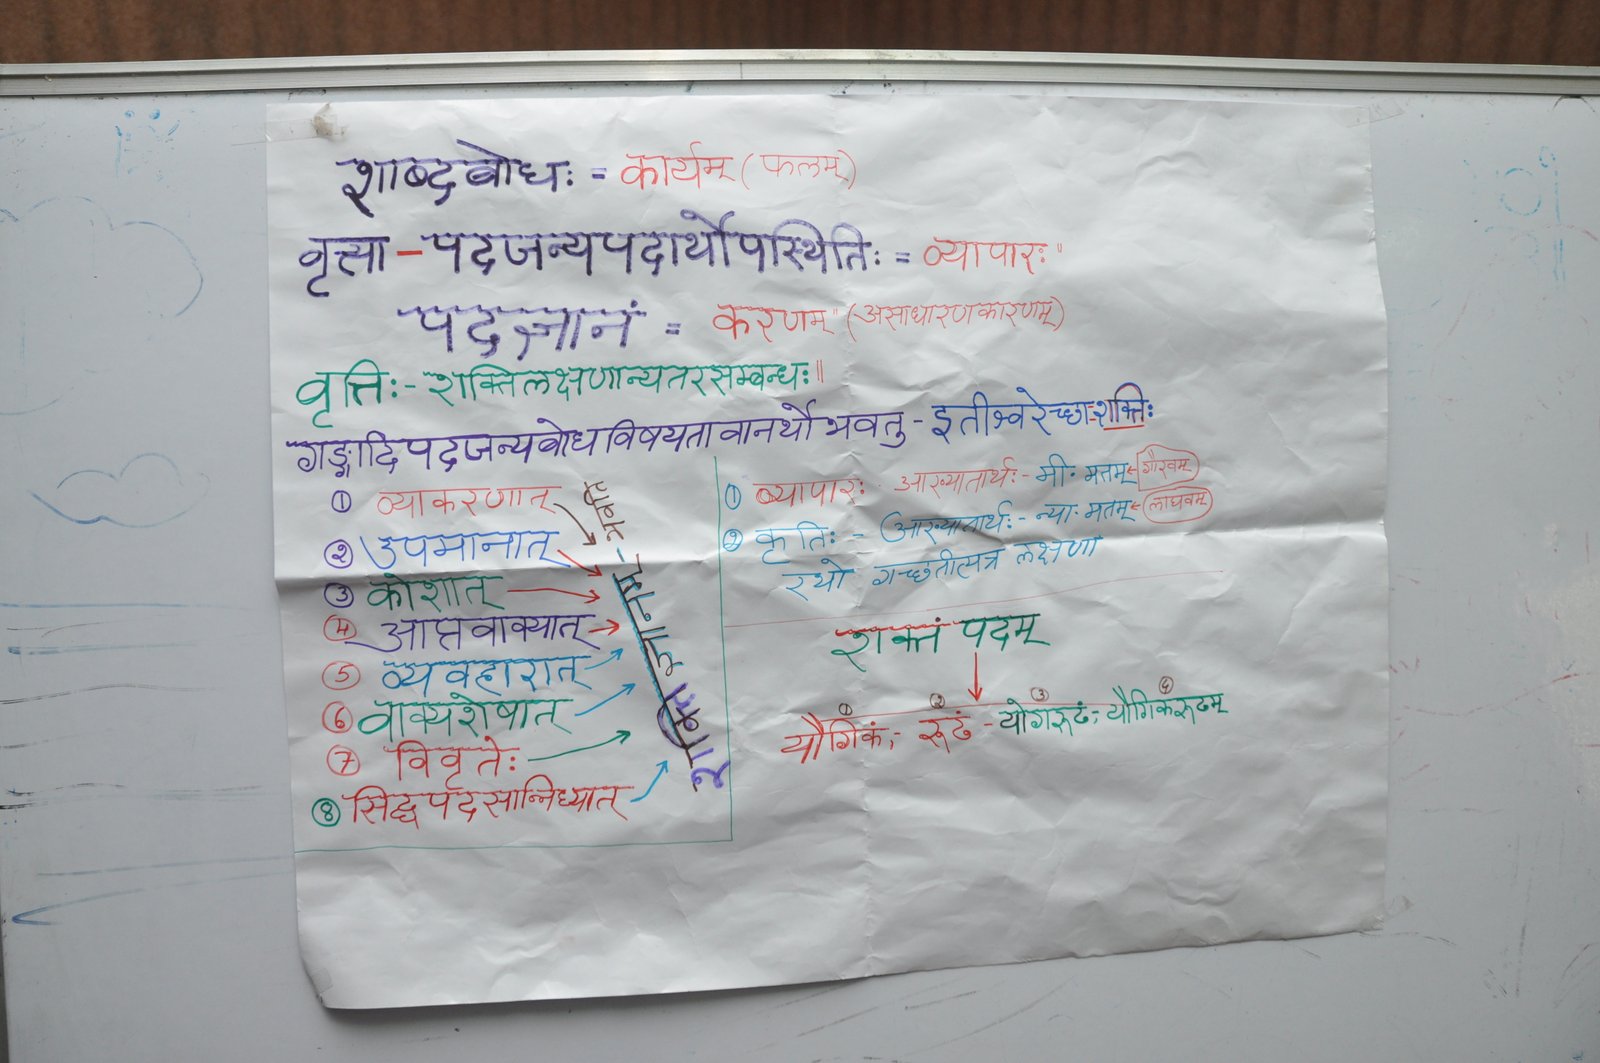 शाब्दबोधः = कार्यम् (फलम्)
वृत्त्या - पदजन्यपदार्थोपस्थितिः = व्यापारः॥
पदज्ञानं = करणम्" (असाधारणकारणम्)
वृत्तिः - शक्तिलक्षणान्यतरसम्बन्धः॥
गङ्गादिपदजन्यबोधविषयतावानर्थो भवतु - इतीश्वरेच्छा-शक्तिः
① व्याकरणात्
② उपमानात्
③ कोशात्
④ आप्तवाक्यात्
⑤ व्यवहारात्
⑥ वाक्यशेषात्
⑦ विवृतेः
⑧ सिद्धपदसान्निध्यात्
शक्ति ज्ञानम् - भवति
① व्यापारः - आख्यातार्थः - मी. मतम् ← गौरवम्
② कृतिः - आख्यातार्थः - न्या. मतम् ← लाघवम्
रथो गच्छतीत्यत्र लक्षणा
शक्तं पदम्
① यौगिकं, - ② रूढं - ③ योगरूढं, ④ यौगिकरूढम्